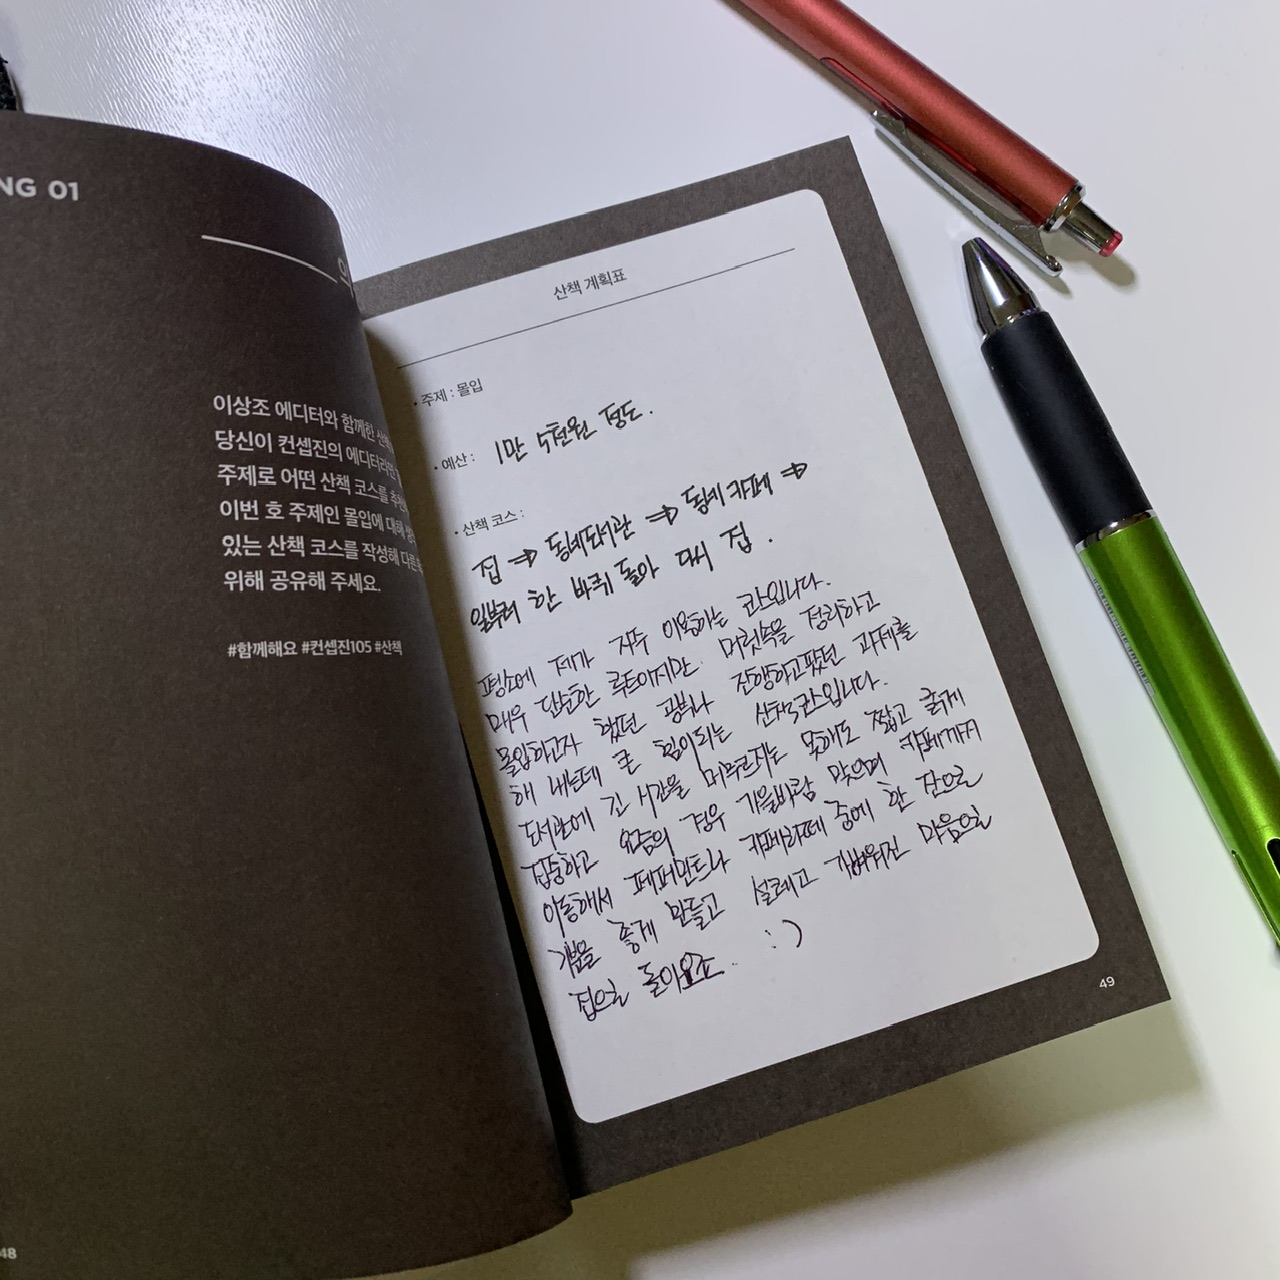 NG 01
이상조 에디터와 함께한 산책
당신이 컨셉진의 에디터라면
주제로 어떤 산책 코스를 추천
이번 호 주제인 몰입에 대해 생각
있는 산책 코스를 작성해 다른
위해 공유해 주세요.
#함께해요 #컨셉진105 #산책
48
산책 계획표
• 주제 : 몰입
• 예산 : 1만 5천원 정도.
• 산책 코스 :
집 ⇒ 동네도서관 ⇒ 동네 카페 ⇒
일부러 한 바퀴 돌아 다시 집.
평소에 제가 자주 이용하는 코스입니다.
매우 단순한 루트이지만 머릿속을 정리하고
몰입하고자 했던 공부나 진행하고팠던 과제를
해 내는데 큰 힘이되는 산책코스입니다.
도서관에 긴 시간을 머무르지는 못해도 짧고 굵게
집중하고 요즘의 경우 가을바람 맞으며 카페까지
이동해서 페퍼민트나 카페라떼 중에 한 잔으로
기분을 좋게 만들고 설레고 가벼워진 마음으로
집으로 돌아오죠. :)
49